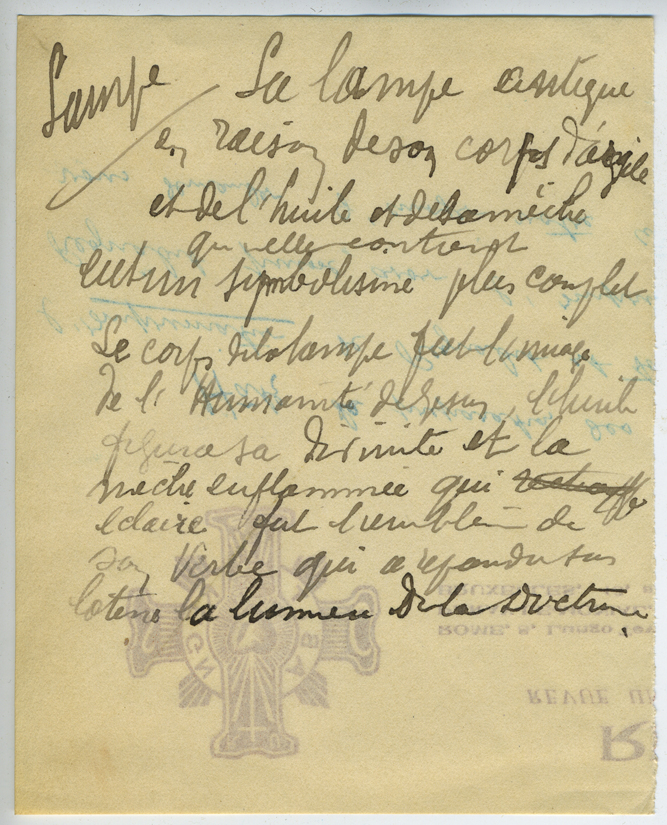 Lampe La lampe antique
en raison de son corps d'argile
et de l'huile et de sa mèche
qu'elle contient
eut un symbolisme plus complet
Le corps de la lampe fut l'image
de l'Humanité de Jesus, l'huile
figura sa Divinité et la
mèche enflammée qui
eclaire fut l'emblème de
son Verbe qui a repandu sur
la terre la lumiere de la Doctrine
BRUXELLES
ROME, 8, Largo
REVUE UN
R